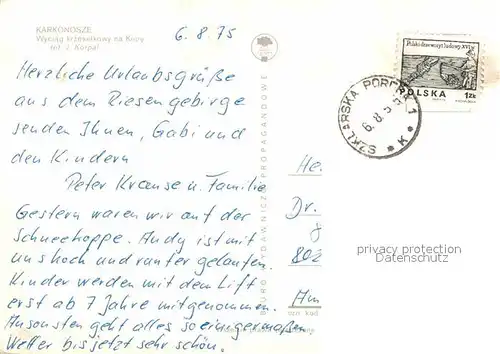 KARKONOSZE
Wyciąg krzesełkowy na Kopę
fot. J. Korpal
6.8.75
Herzliche Urlaubsgrüße
aus dem Riesengebirge
senden Ihnen, Gabi und
den Kindern
Peter Krause u. Familie
Gestern waren wir auf der
Schneekoppe. Andy ist mit
uns hoch und runter gelaufen.
Kinder werden mit dem Lift
erst ab 7 Jahre mitgenommen.
Ansonsten geht alles so einigermaßen.
Wetter bis jetzt sehr schön.
BIURO WYDAWNICZE PROPAGANDOWE
Polski drzeworyt ludowy XVI w.
POLSKA 1ZŁ
SZKLARSKA PORĘBA 1
6.8.
K
He
Dr.
802
privacy protection
Datenschutz